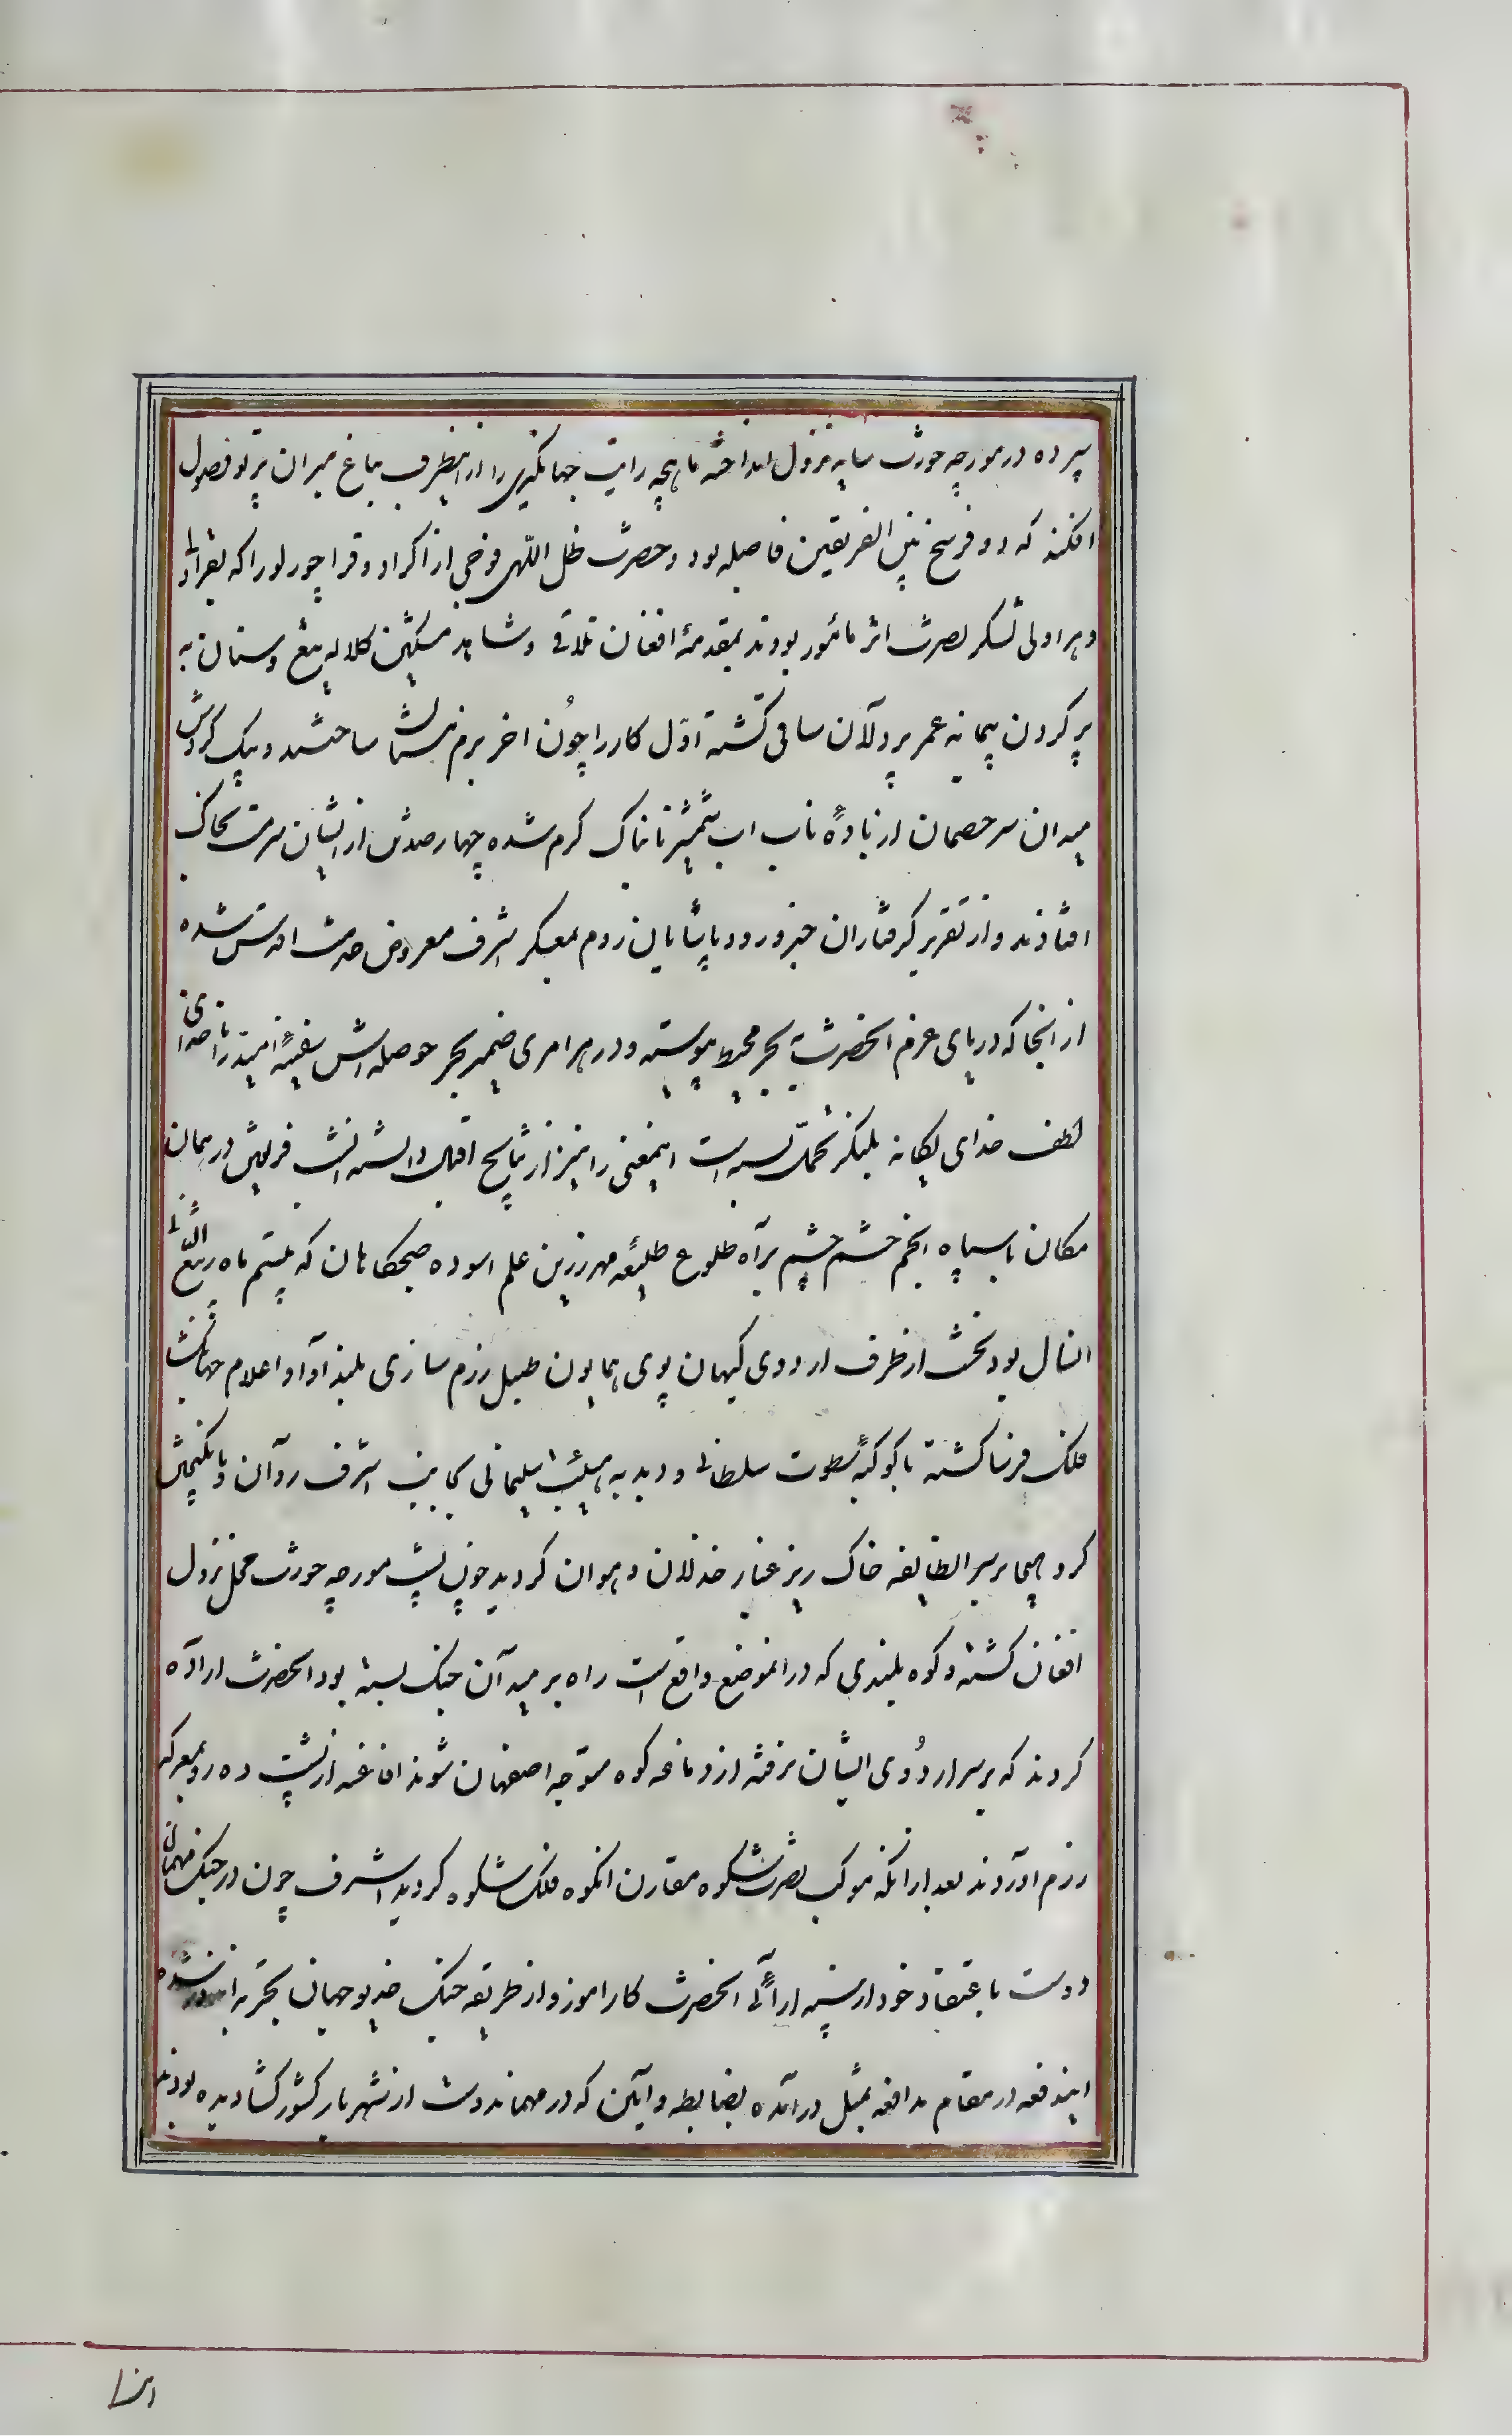 سپرده در مورچه خورت سایه نزول انداخته ماهچه رایت جهانگیری را از اینطرف بباغ میران پرتو فصول
افکند که دو فرسخ بین الفریقین فاصله بود و حضرت ظل اللهی فوجی از اکراد و قراچورلو را که بقراولی
و هراولی لشکر نصرت اثر مامور بودند بمقدمهٔ افغان تلاقی و شاهد مشکین کلاله تیغ و سنان به
پر کردن پیمانه عمر پردلان ساقی کشته اوّل کار را چون اخر بزم ساختند و بیک گردش
میدان سر خصمان از بادهٔ ناب اب شمشیر تابناک گرم شده چهار صد تن از ایشان سرمست بخاک
افتادند و از تقریر گرفتاران خبر ورود پاشایان روم بمعسکر اشرف معروض خدمت اقدس شده
از انجا که دریای عزم انحضرت به بحر محیط پیوسته و در هر امری ضمیر بحر حوصله اش سفینهٔ امید را ناخدای
لطف خدای یگانه بلنگر تحمل بسته است اینمعنی را نیز از نتایج اقبال دانسته انشب فریش در همان
مکان با سپاه انجم حشم چشم براه طلوع طلیعهٔ مهر زرین علم اسوده صبحگاهان که بیستم ماه ربیع الثانی
انسال بود نخست از طرف اردوی کیهان پوی همایون طبل رزم سازی بلند اوا و اعلام جهانگشا
فلک فرسا کشته با کوکبهٔ سطوت سلطانی و دبدبه هیبت سلیمانی بجانب اشرف روان و بانگیختن
گرد هیجا بر سر انطایفه خاک ریز غبار خذلان و هوان گردید چون پشت مورچه خورت محل نزول
افغان کشته و کوه بلندی که در انموضع واقع است راه بر میدان جنک بسته بود انحضرت اراده
کردند که بر سر اردوی ایشان نرفته از دماغه کوه متوجه اصفهان شوند افاغنه از پشت ده رو بمعرکه
رزم اوردند بعد از انکه موکب نصرت شکوه مقارن انکوه فلک شکوه گردید اشرف چون در جنک مهمان
دوست باعتقاد خود از سپه ارائی انحضرت کار اموز و از طریقه جنک خدیو جهان تجربه اندوز شده
ایندفعه در مقام مدافعه بمثل درامده بضابطه و ایین که در مهماندوست از شهریار کشور گشا دیده بودند